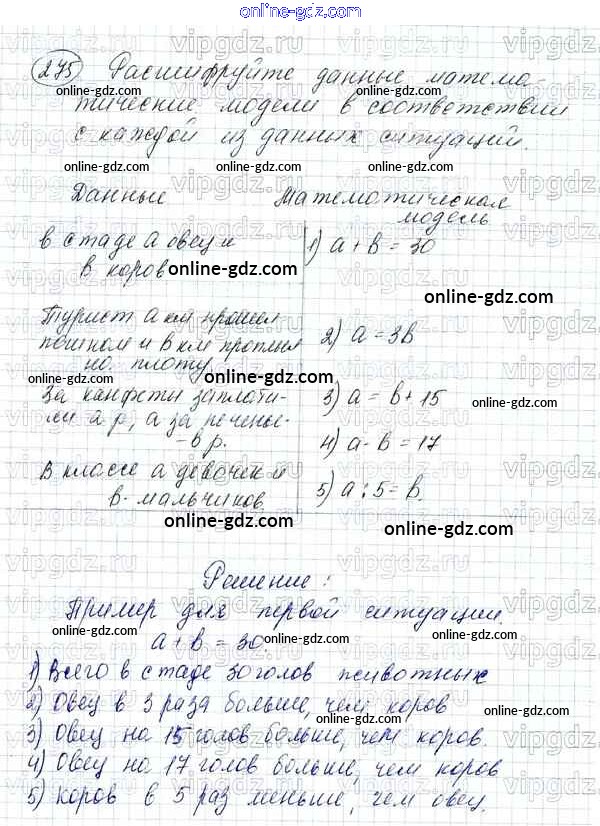 online-gdz.com
275 Расшифруйте данные матема-
тические модели в соответствии
с каждой из данных ситуаций.
Данные Математическая
модель
в стаде a овец и
в коров
1) a + b = 30
Турист a км прошел
пешком и в км проплыл
на плоту
2) a = 3b
За конфеты заплати-
ли a р, а за печенье
- в р.
3) a = b + 15
4) a - b = 17
В классе a девочек и
в - мальчиков
5) a : 5 = b.
Решение:
Пример для первой ситуации.
a + b = 30.
1) Всего в стаде 30 голов животных
2) Овец в 3 раза больше, чем коров
3) Овец на 15 голов больше, чем коров.
4) Овец на 17 голов больше, чем коров
5) коров в 5 раз меньше, чем овец.